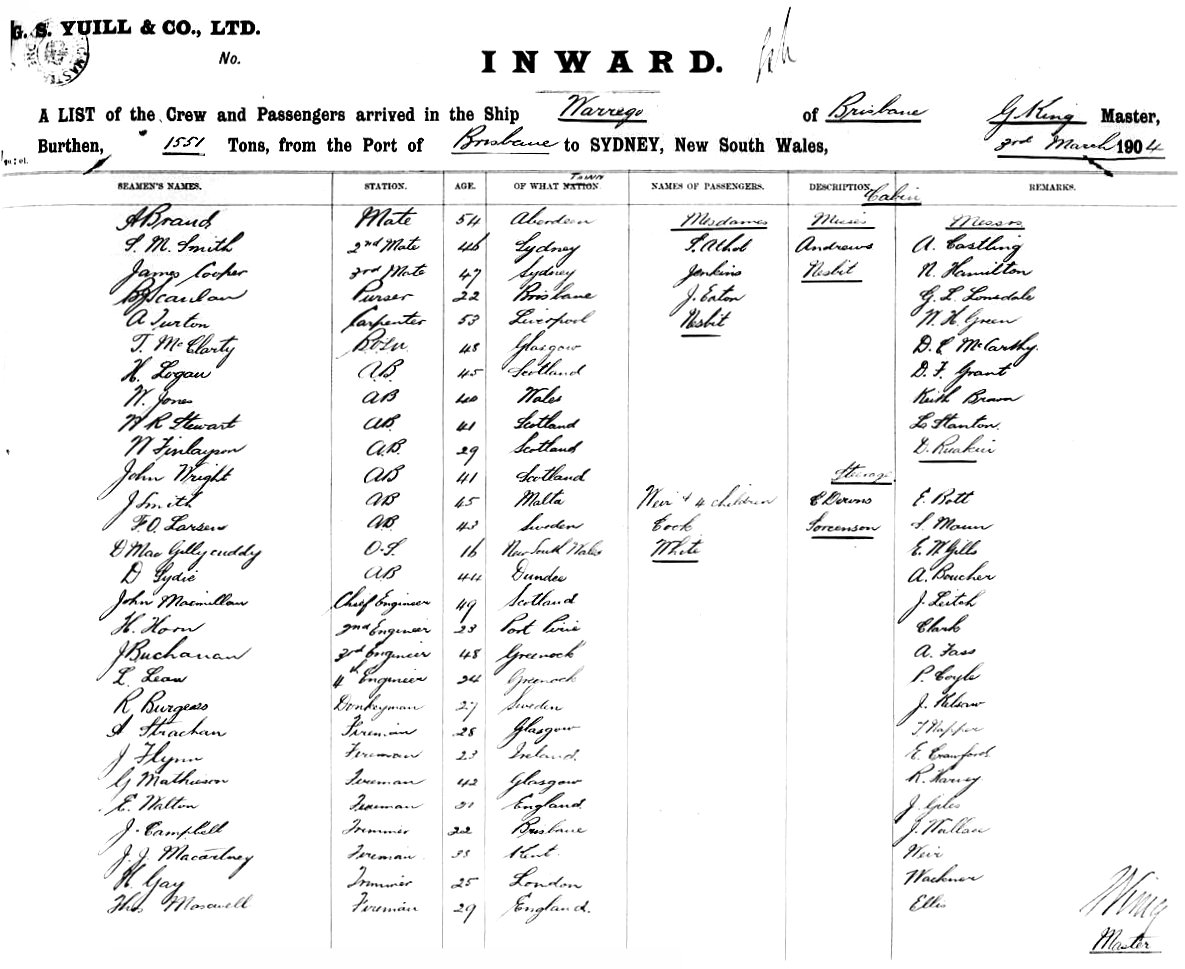 G. S. YUILL & CO., LTD.
No.
INWARD.
A LIST of the Crew and Passengers arrived in the Ship Warrego of Brisbane G King Master,
Burthen, 1551 Tons, from the Port of Brisbane to SYDNEY, New South Wales, 3rd March 1904
SEAMEN'S NAMES. STATION. AGE. OF WHAT NATION TOWN NAMES OF PASSENGERS. DESCRIPTION. REMARKS.
Cabin
A Brand Mate 54 Aberdeen Mesdames Misses Messrs
S. M. Smith 2nd Mate 46 Sydney Andrews A. Costling
James Cooper 3rd Mate 47 Sydney Jenkins Nesbit N. Hamilton
Scanlan Purser 22 Brisbane J. Eaton G. L. Lonsdale
A Turton Carpenter 53 Liverpool Nesbit W. H. Green
T. McClarty Bosn 48 Glasgow D. C. McCarthy.
H. Logan AB 45 Scotland D. F. Grant
W. Jones AB 40 Wales Keith Brown
W R Stewart AB 41 Scotland L. Stanton.
W Finlayson A.B. 29 Scotland D. Ruakin
John Wright AB 41 Scotland Steerage
J Smith AB 45 Malta Weir + 4 children C Downs E. Bott
F.O. Larsen AB 43 Sweden Cock Sorcenson S. Mann
D MacGillycuddy O.S. 16 New South Wales White E. W. Gills
D Sydie AB 44 Dundee A. Boucher
John Macmillan Chief Engineer 49 Scotland J. Leitch
H. Horn 2nd Engineer 23 Port Pirie Clark
J Buchanan 3rd Engineer 48 Greenock A. Fass
L. Lean 4th Engineer 24 Greenock P. Coyle
R. Burgess Donkeyman 27 Sweden J. Kelsaw
A Strachan Fireman 28 Glasgow T Napper
J Flynn Fireman 23 Ireland. E. Crawford
G Mathieson Fireman 42 Glasgow R. Harvey
E. Walton Fireman 21 England J. Giles
J. Campbell Trimmer 22 Brisbane J. Wallace
J. J. Macartney Fireman 33 Kent Weir
H. Gay Trimmer 25 London Wackner
Thos Maxwell Fireman 29 England. Ellis
Master